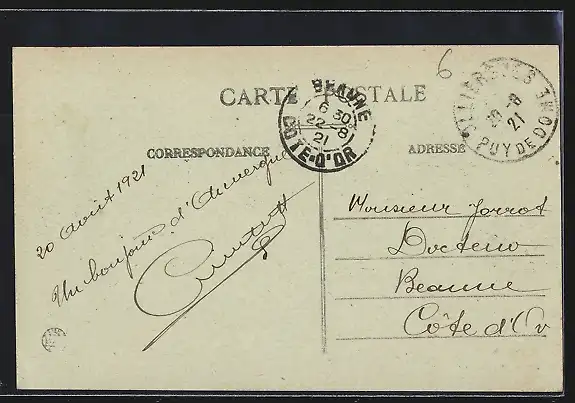 6
CARTE POSTALE
BEAUNE
6 30
22-8
21
COTE-D'OR
-8
21
PUY DE DOME
CORRESPONDANCE
ADRESSE
20 Août 1921
Un bonjour d'Auvergne
Monsieur Jorrot
Docteur
Beaune
Côte d'Or